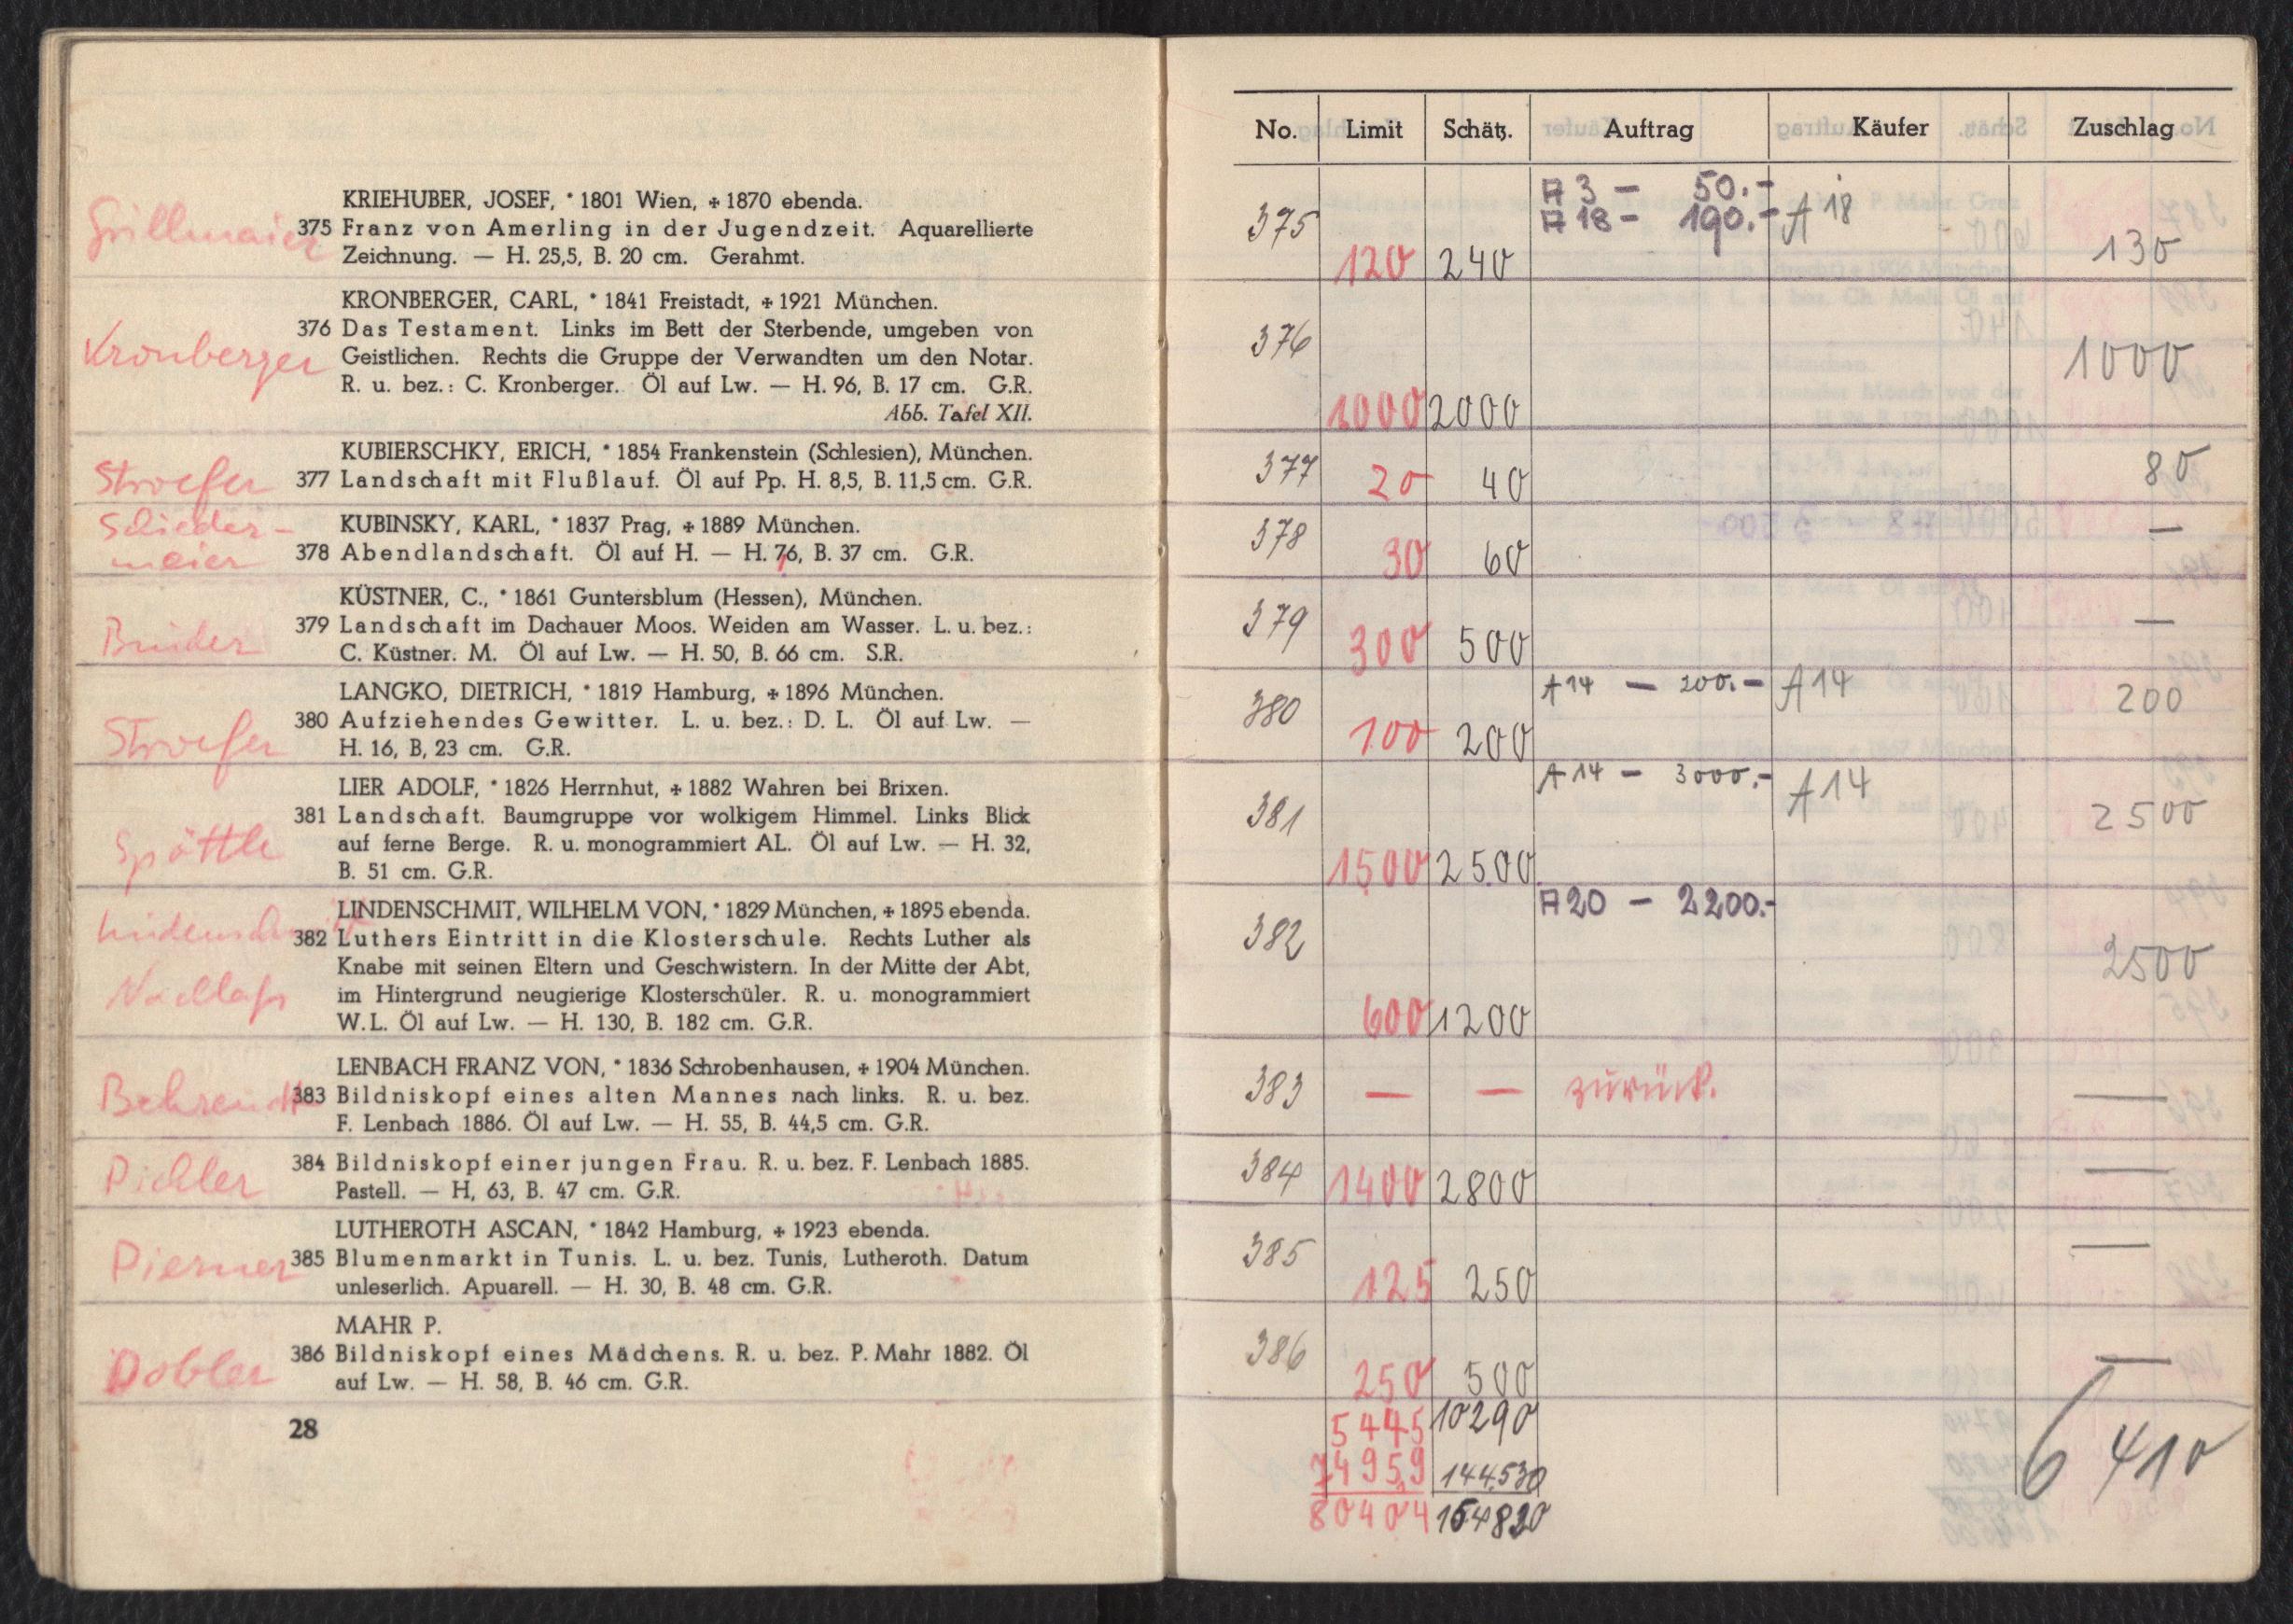 KRIEHUBER, JOSEF, * 1801 Wien, + 1870 ebenda.
Grillmaier
375 Franz von Amerling in der Jugendzeit. Aquarellierte
Zeichnung. — H. 25,5, B. 20 cm. Gerahmt.
KRONBERGER, CARL, * 1841 Freistadt, + 1921 München.
376 Das Testament. Links im Bett der Sterbende, umgeben von
Kronberger
Geistlichen. Rechts die Gruppe der Verwandten um den Notar.
R. u. bez.: C. Kronberger. Öl auf Lw. — H. 96, B. 17 cm. G.R.
Abb. Tafel XII.
KUBIERSCHKY, ERICH, * 1854 Frankenstein (Schlesien), München.
Stroefer
377 Landschaft mit Flußlauf. Öl auf Pp. H. 8,5, B. 11,5 cm. G.R.
Schieder-
KUBINSKY, KARL, * 1837 Prag, + 1889 München.
maier
378 Abendlandschaft. Öl auf H. — H. 76, B. 37 cm. G.R.
KÜSTNER, C., * 1861 Guntersblum (Hessen), München.
379 Landschaft im Dachauer Moos. Weiden am Wasser. L. u. bez.:
Binder
C. Küstner. M. Öl auf Lw. — H. 50, B. 66 cm. S.R.
LANGKO, DIETRICH, * 1819 Hamburg, + 1896 München.
380 Aufziehendes Gewitter. L. u. bez.: D. L. Öl auf Lw. —
Stroefer
H. 16, B, 23 cm. G.R.
LIER ADOLF, * 1826 Herrnhut, + 1882 Wahren bei Brixen.
381 Landschaft. Baumgruppe vor wolkigem Himmel. Links Blick
Spöttle
auf ferne Berge. R. u. monogrammiert AL. Öl auf Lw. — H. 32,
B. 51 cm. G.R.
LINDENSCHMIT, WILHELM VON, * 1829 München, + 1895 ebenda.
Lindenschmit
382 Luthers Eintritt in die Klosterschule. Rechts Luther als
Knabe mit seinen Eltern und Geschwistern. In der Mitte der Abt,
Nachlass
im Hintergrund neugierige Klosterschüler. R. u. monogrammiert
W.L. Öl auf Lw. — H. 130, B. 182 cm. G.R.
LENBACH FRANZ VON, * 1836 Schrobenhausen, + 1904 München.
Behrendt
383 Bildniskopf eines alten Mannes nach links. R. u. bez.
F. Lenbach 1886. Öl auf Lw. — H. 55, B. 44,5 cm. G.R.
384 Bildniskopf einer jungen Frau. R. u. bez. F. Lenbach 1885.
Pichler
Pastell. — H, 63, B. 47 cm. G.R.
LUTHEROTH ASCAN, * 1842 Hamburg, + 1923 ebenda.
385 Blumenmarkt in Tunis. L. u. bez. Tunis, Lutheroth. Datum
unleserlich. Apuarell. — H. 30, B. 48 cm. G.R.
MAHR P.
386 Bildniskopf eines Mädchens. R. u. bez. P. Mahr 1882. Öl
Dobler
auf Lw. — H. 58, B. 46 cm. G.R.
28
No. Limit Schätz. Auftrag Käufer Zuschlag
A 3 — 50.-
375 120 240 A 18 - 190.- A 18 130
376 1000 2000 1000
377 20 40 80
378 30 60 —
379 300 500 —
380 100 200 A 14 — 200.- A 14 200
381 1500 2500 A 14 — 3000.- A 14 2500
382 600 1200 A 20 — 2200.- 2500
383 — — zurück. —
384 1400 2800 —
385 125 250 —
386 250 500 —
5445 10290 6410
74959 144530
80404 154820